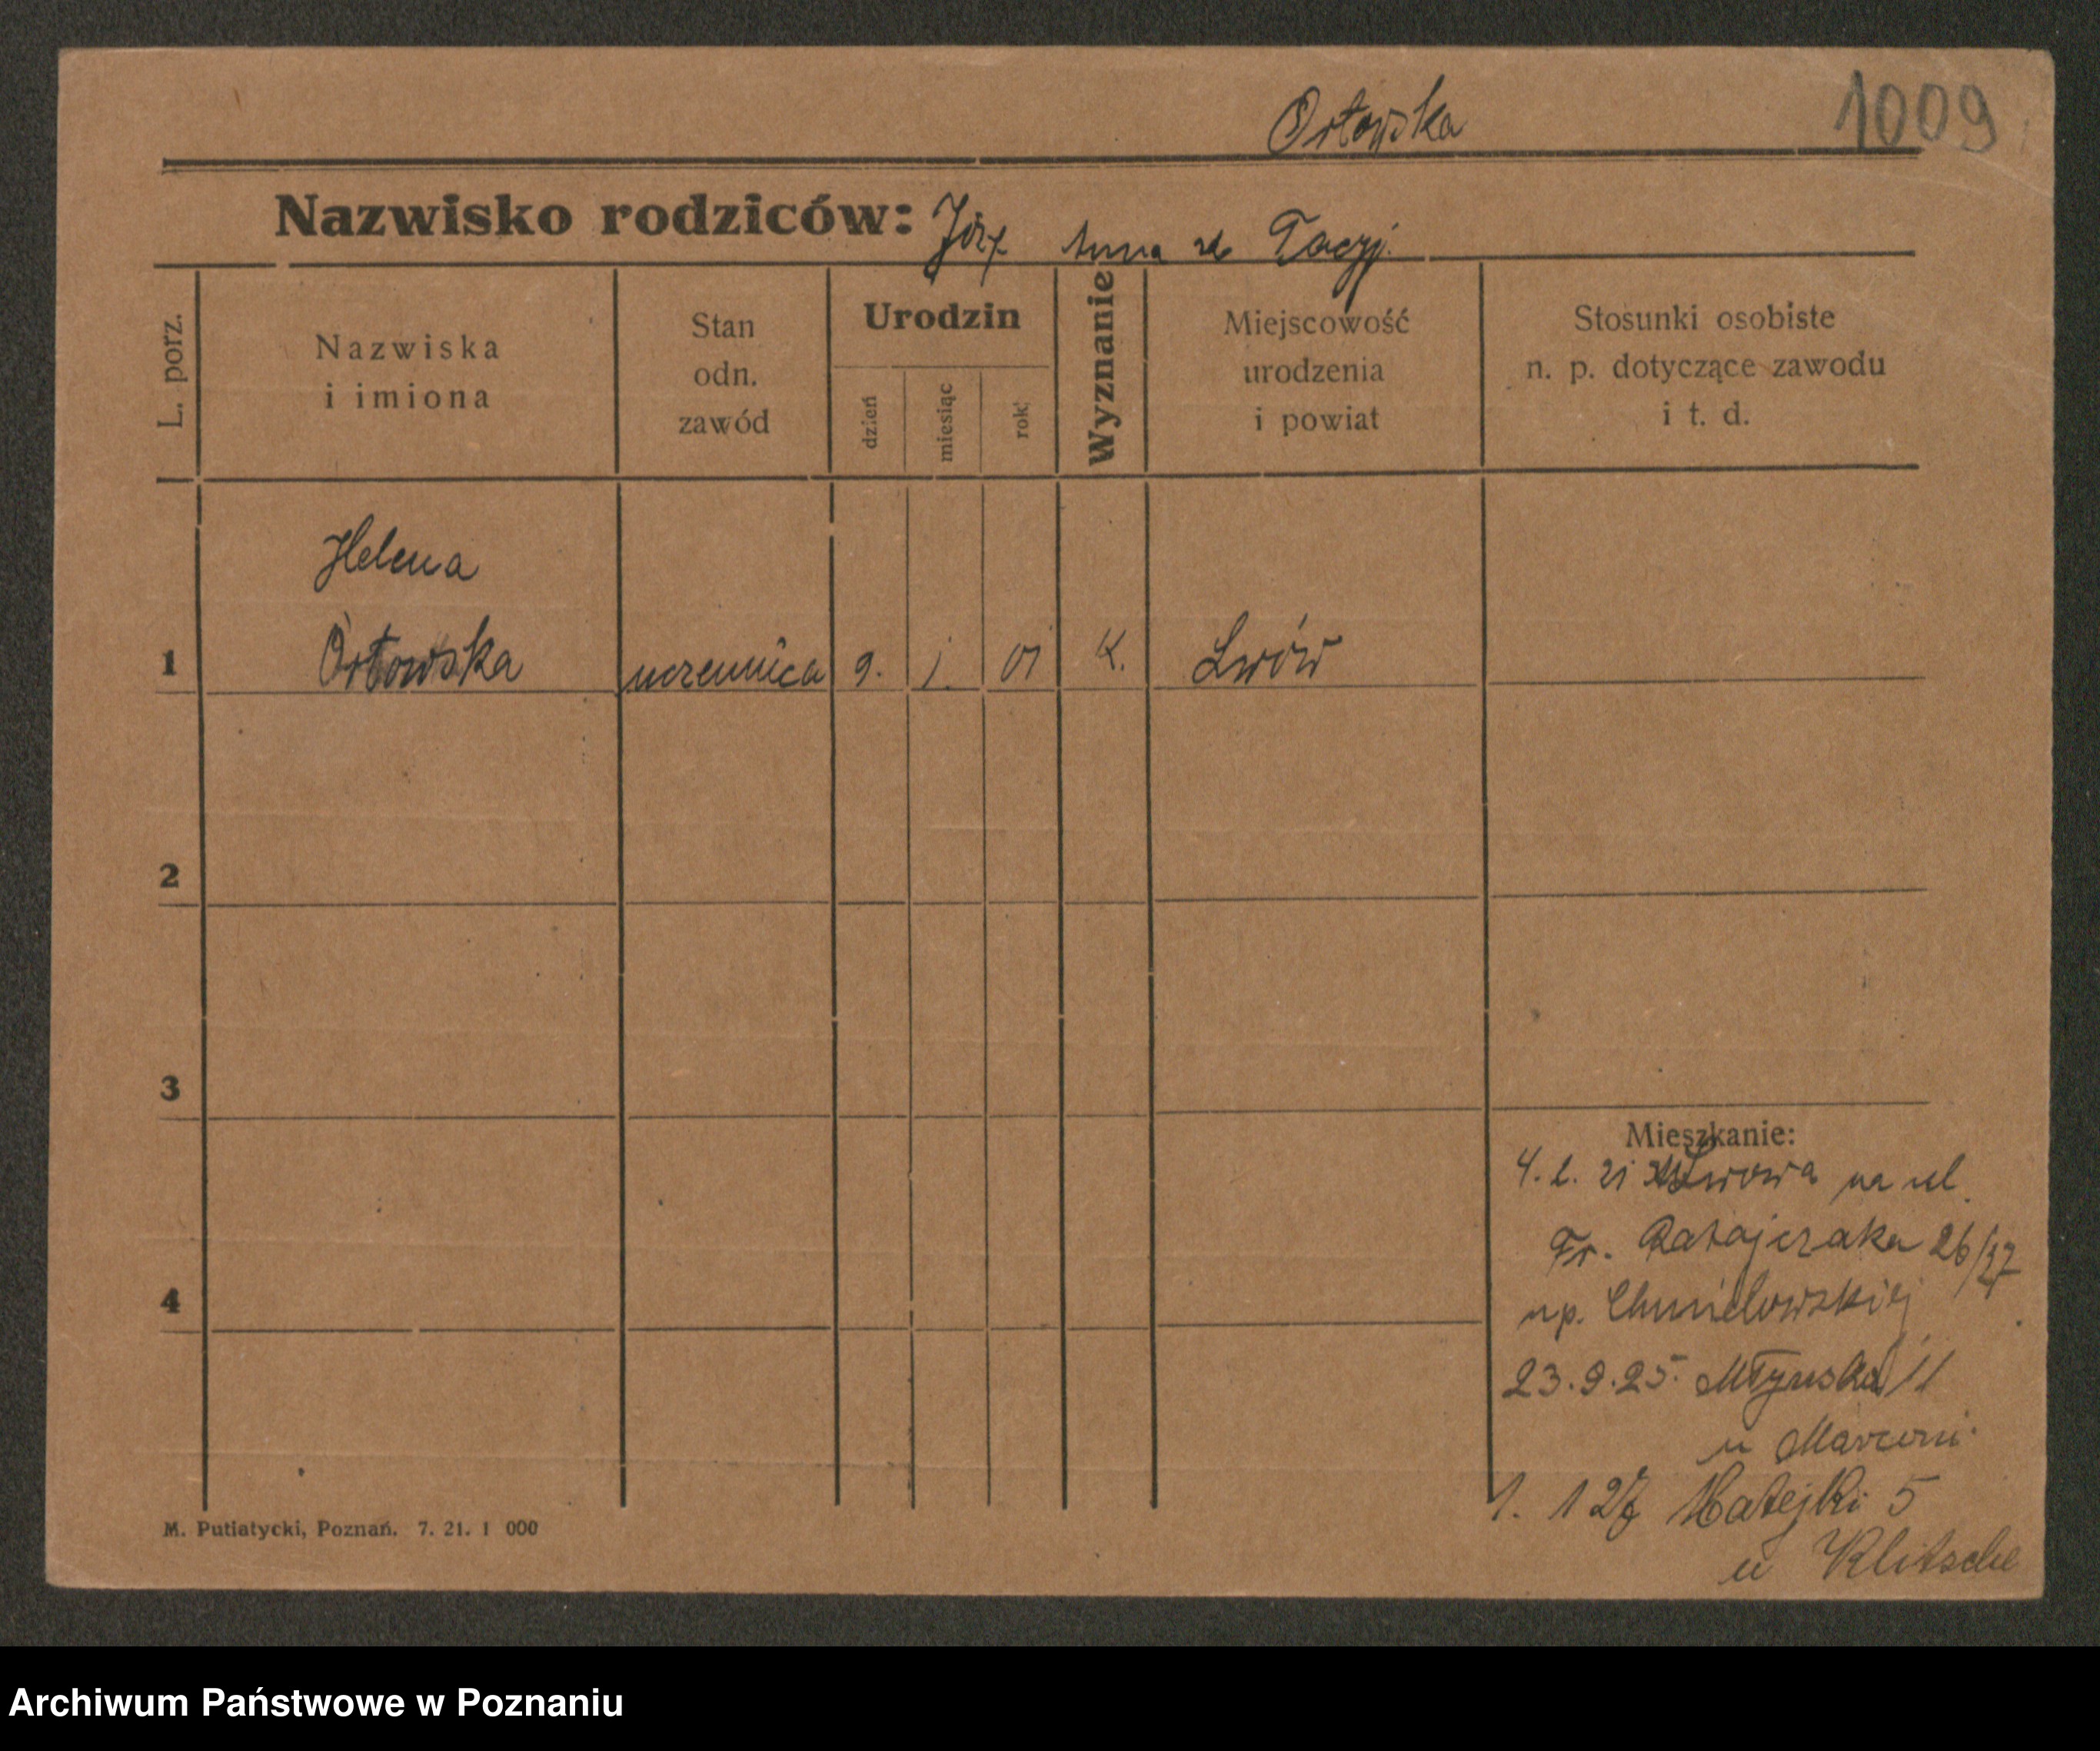 Orłowska
1009
Nazwisko rodziców: Józf Anna zd
L. porz.
Nazwiska
i imiona
Stan
odn.
zawód
Urodzin
dzień
miesiąc
rok
Wyznanie
Miejscowość
urodzenia
i powiat
Stosunki osobiste
n. p. dotyczące zawodu
i t. d.
Helena
1 Orłowska uczennica 9. 1. 01 K. Lwów
2
3
Mieszkanie:
4. 2. 21 Lwowa na ul.
Fr. Ratajczaka 26/27
4
up. Chmielowskiej
23.9.25. Młyńska 11
u
1. 1 27 Matejki 5
u Klitsche
M. Putiatycki, Poznań. 7. 21. 1 000
Archiwum Państwowe w Poznaniu